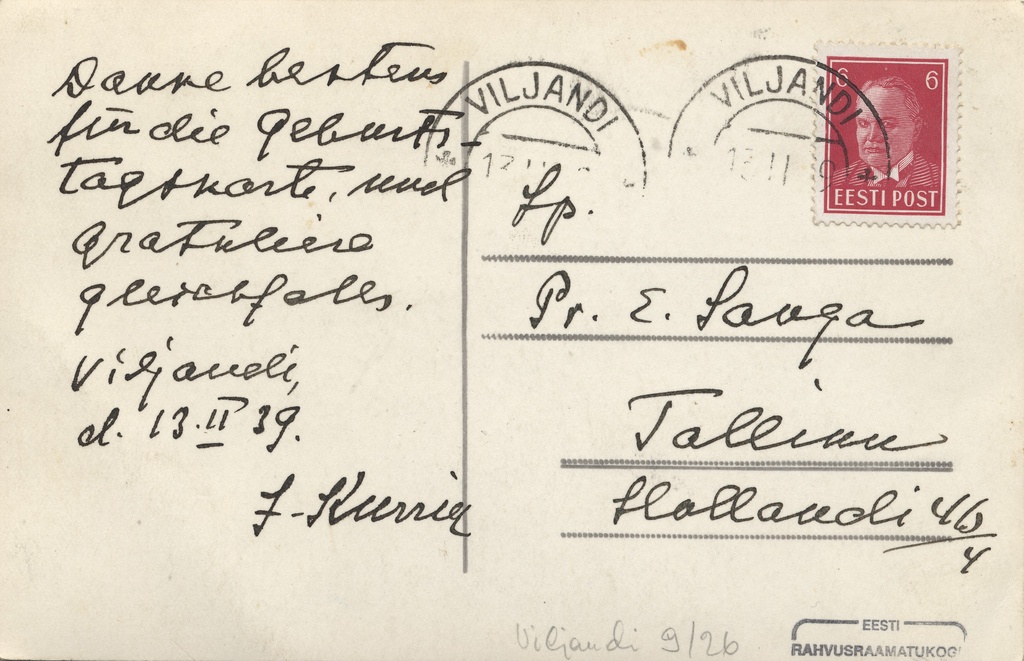 Danke bestens
für die Geburts-
tagskarte, und
gratuliere
gleichfalls.
Viljandi,
d. 13.II 39.
J. Kurrik
VILJANDI
13 II
VILJANDI
13 II 9
6 6
EESTI POST
Lp.
Pr. E. Sauga
Tallinn
Hollandi 4b/4
Viljandi 9/26
EESTI
RAHVUSRAAMATUKOG